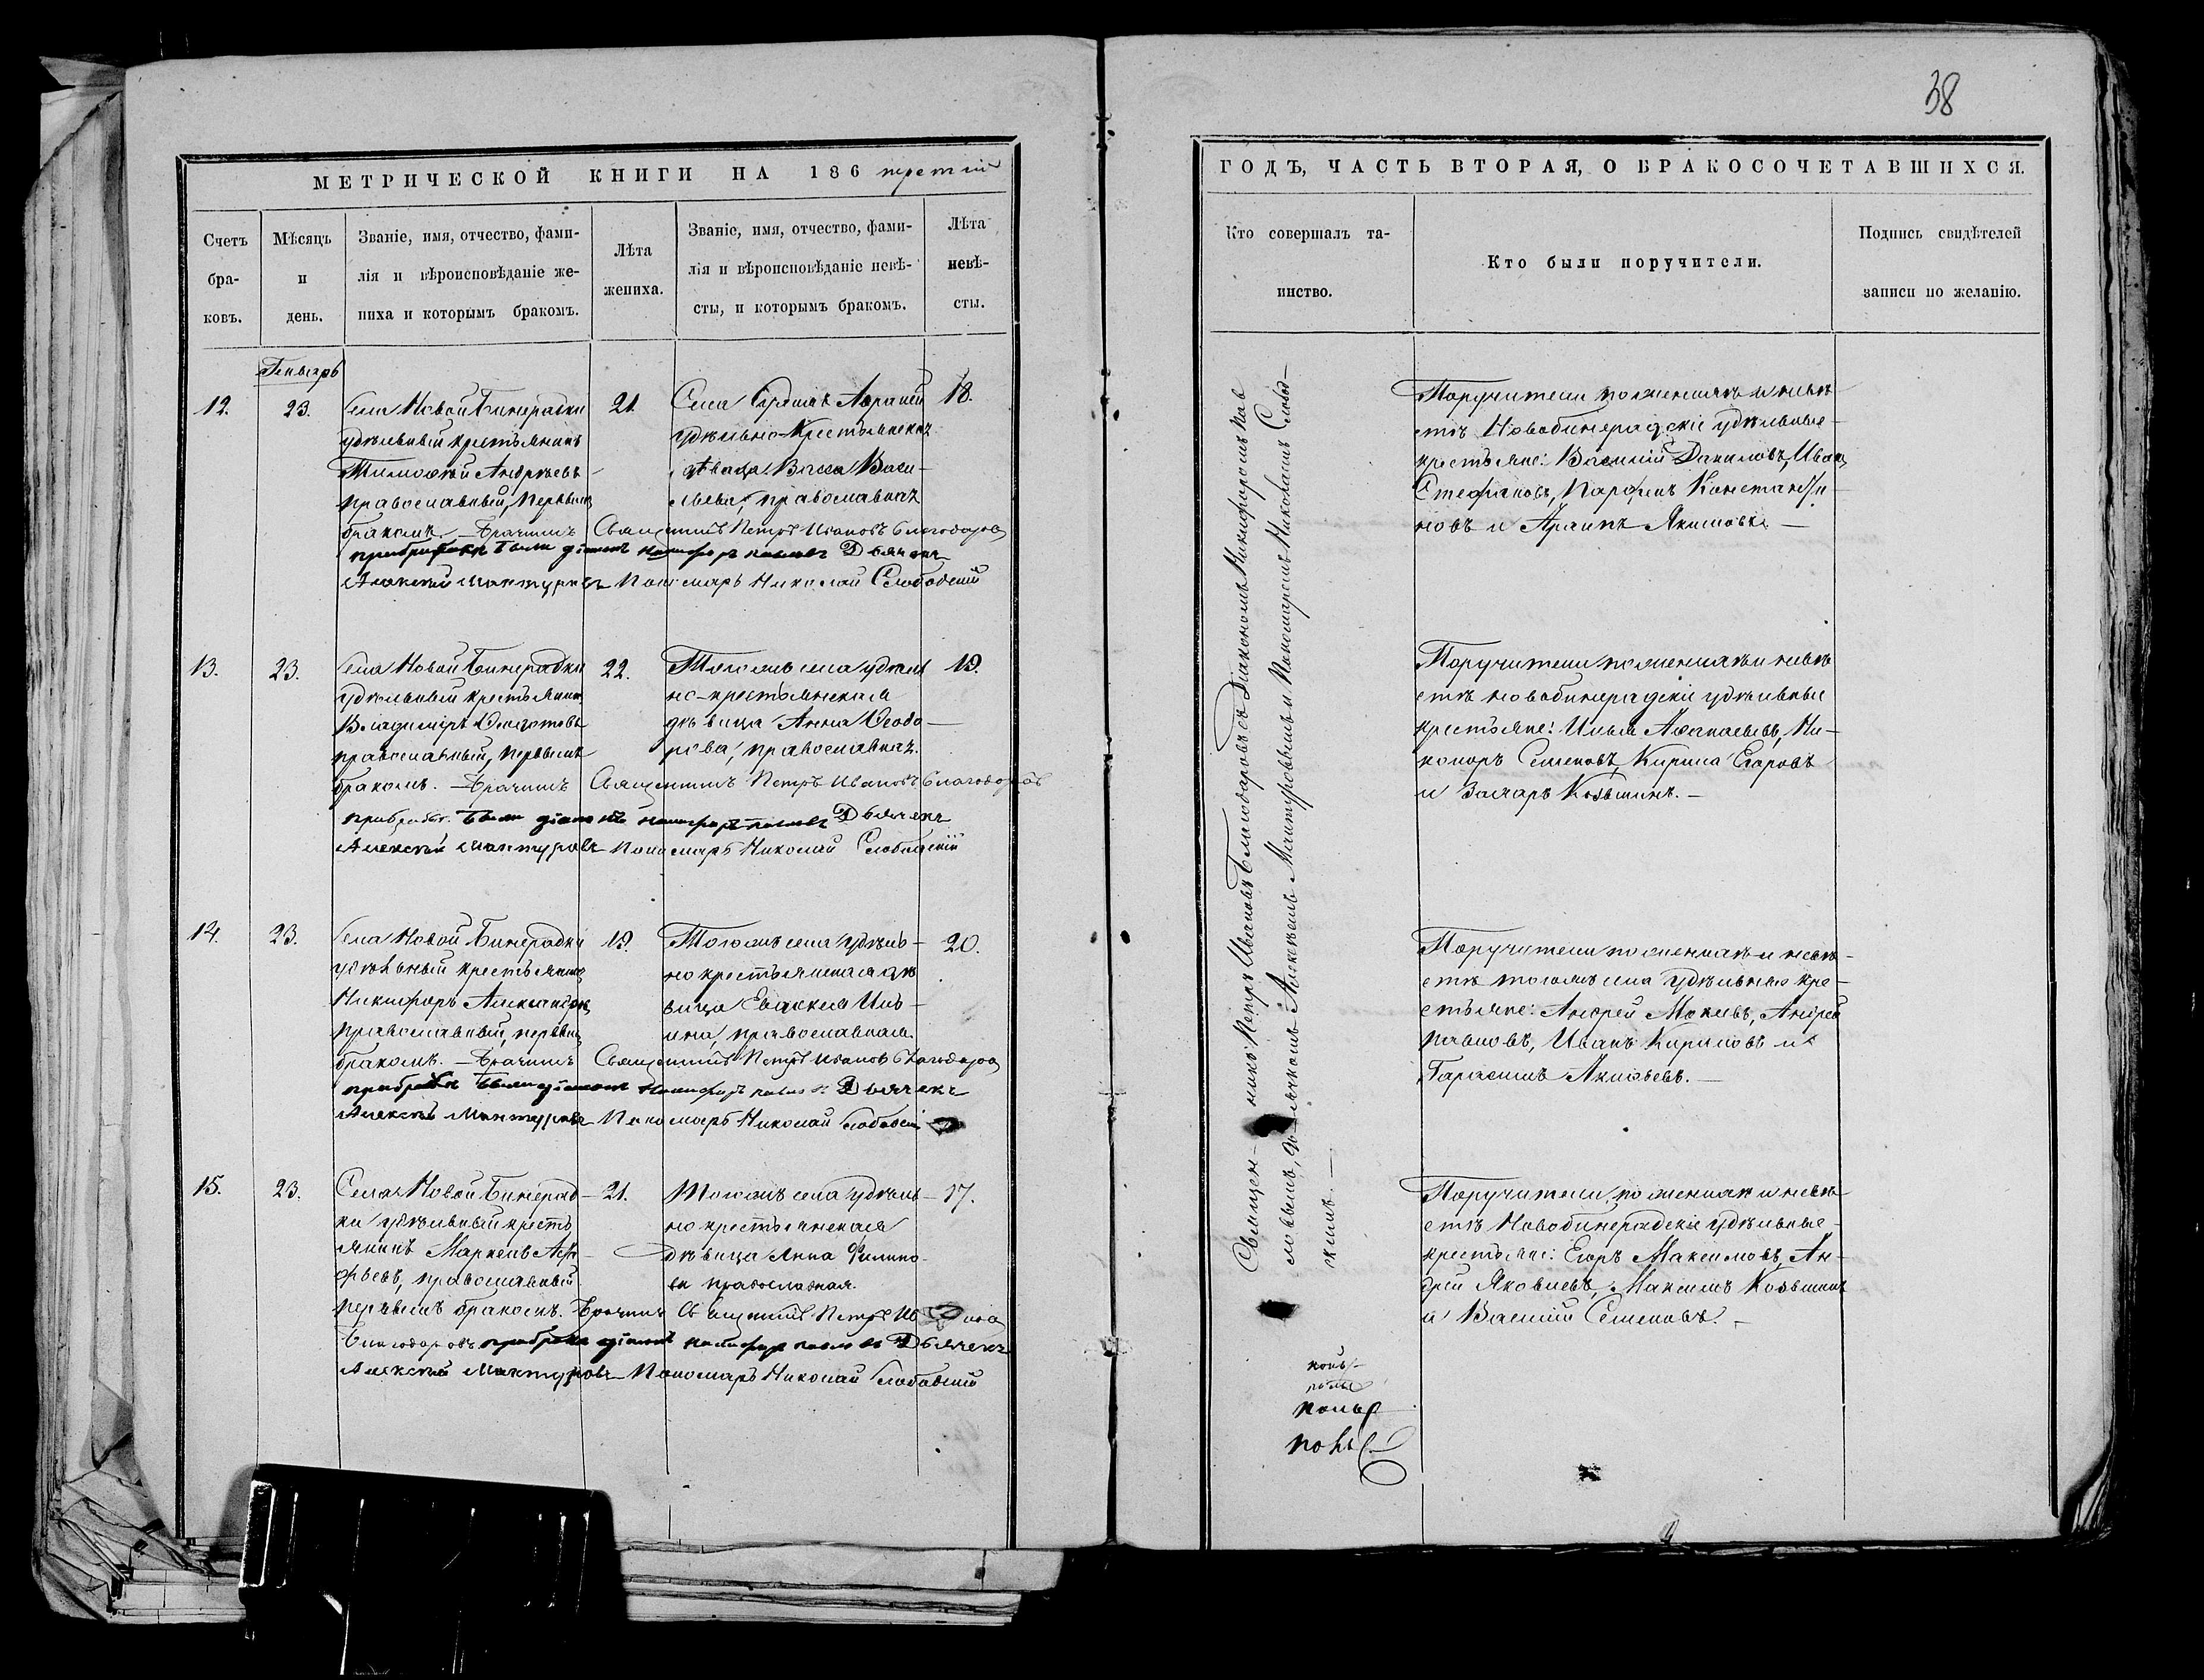 38
МЕТРИЧЕСКОЙ КНИГИ НА 186 третій
Счетъ бра- ковъ.
Мѣсяцъ и день.
Званіе, имя, отчество, фами-
лія и вѣроисповѣданіе же-
ниха и которымъ бракомъ.
Лѣта жениха.
Званіе, имя, отчество, фами-
лія и вѣроисповѣданіе невѣ-
сты, и которымъ бракомъ.
Лѣта невѣ- сты.
Генварь
12.
23.
Села Новой Бинерадки
удѣльный крестьянинъ
Тимоѳей Андреевъ
православный, первымъ
бракомъ. — Брачилъ Священникъ Петръ Ивановъ Благодаровъ
были діаконъ Дьячекъ
Алексѣй Мантуровъ Пономарь Николай Слободскій
21.
Села
удѣльно-крестьянская
дѣвица Васса Васи-
льева, православная
18.
13.
23.
Села Новой Бинерадки
удѣльный крестьянинъ
Владимиръ
православный, первымъ
бракомъ. — Брачилъ Священникъ Петръ Ивановъ Благодаровъ
были діаконъ Дьячекъ
Алексѣй Мантуровъ Пономарь Николай Слободскій
22.
Тогожъ села удѣль
но-крестьянская
дѣвица Анна Ѳеодо
рова, православная.
19.
14.
23.
Села Новой Бинерадки
удѣльный крестьянинъ
Никифоръ
православный, первымъ
бракомъ. — Брачилъ Священникъ Петръ Ивановъ Благодаровъ
были діаконъ Дьячекъ
Алексѣй Мантуровъ Пономарь Николай Слободскій
19.
Тогожъ села удѣль-
но крестьянская дѣ
вица Иль-
ина, православная.
20.
15.
23.
Села Новой Бинерад-
ки удѣльный кресть
янинъ Маркелъ
православный
первымъ бракомъ. Брачилъ Священникъ Петръ
Благодаровъ діаконъ Дьячекъ
Алексѣй Мантуровъ Пономарь Николай Слободскій
21.
Тогожъ села удѣль-
но крестьянская
дѣвица Анна Филипо-
ва православная.
17.
ГОДЪ, ЧАСТЬ ВТОРАЯ, О БРАКОСОЧЕТАВШИХСЯ.
Кто совершалъ та-
инство.
Кто были поручители.
Подпись свидѣтелей
записи по желанію.
Священ- никъ Петръ Ивановъ Благодаровъ съ Діакономъ Никифоромъ Пав
ловымъ, дьячкомъ Алексѣемъ Мантуровымъ и Пономаремъ Николаемъ Слобод-
скимъ. —
Поручители по женихѣ и невѣ
стѣ Новобинерадскіе удѣльные
крестьяне: Василій Даниловъ, Иванъ
Стефановъ, Парфенъ Константи
новъ и Якимовъ —
Поручители по женихѣ и невѣ
стѣ новобинерадскіе удѣльные
крестьяне: Илья Аѳанасьевъ, Ни-
коноръ Семеновъ, Кирила Егоровъ
и Захаръ Козьминъ. —
Поручители по женихѣ и невѣ-
стѣ тогожъ села удѣльные кре-
стьяне: Андрей Андрей
Павловъ, Иванъ Кириловъ и
Гарасимъ —
Поручители по женихѣ и невѣ-
стѣ Новобинерадскіе удѣльные
крестьяне: Егоръ Максимовъ, Ан-
дрей Яковлевъ, Максимъ Козьминъ
и Василій Семеновъ. —